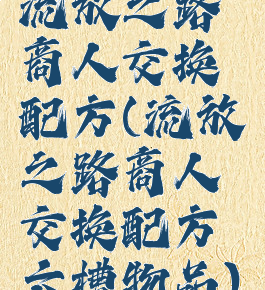 流放之路
商人交换
配方(流放
之路商人
交换配方
六槽物品)